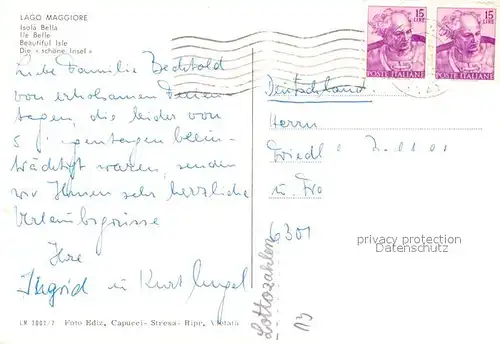 LAGO MAGGIORE
Isola Bella
Ile Belle
Beautiful Isle
Die « schöne Insel »
Liebe Familie Bechtold
von erholsamen Ferien-
tagen, die leider von
5 Regentagen beein-
trächtigt waren, senden
wir Ihnen sehr herzliche
Urlaubsgrüsse
Ihre
Ingrid u Kurt
LM 1001/7 Foto Ediz. Capucci - Stresa - Ripr. Vietata
15
LIRE
POSTE ITALIANE
15
LIRE
POSTE ITALIANE
Deutschland
Herrn
Friedl
u. Fra
6301
privacy protection
watermark
Lottozahlen
13